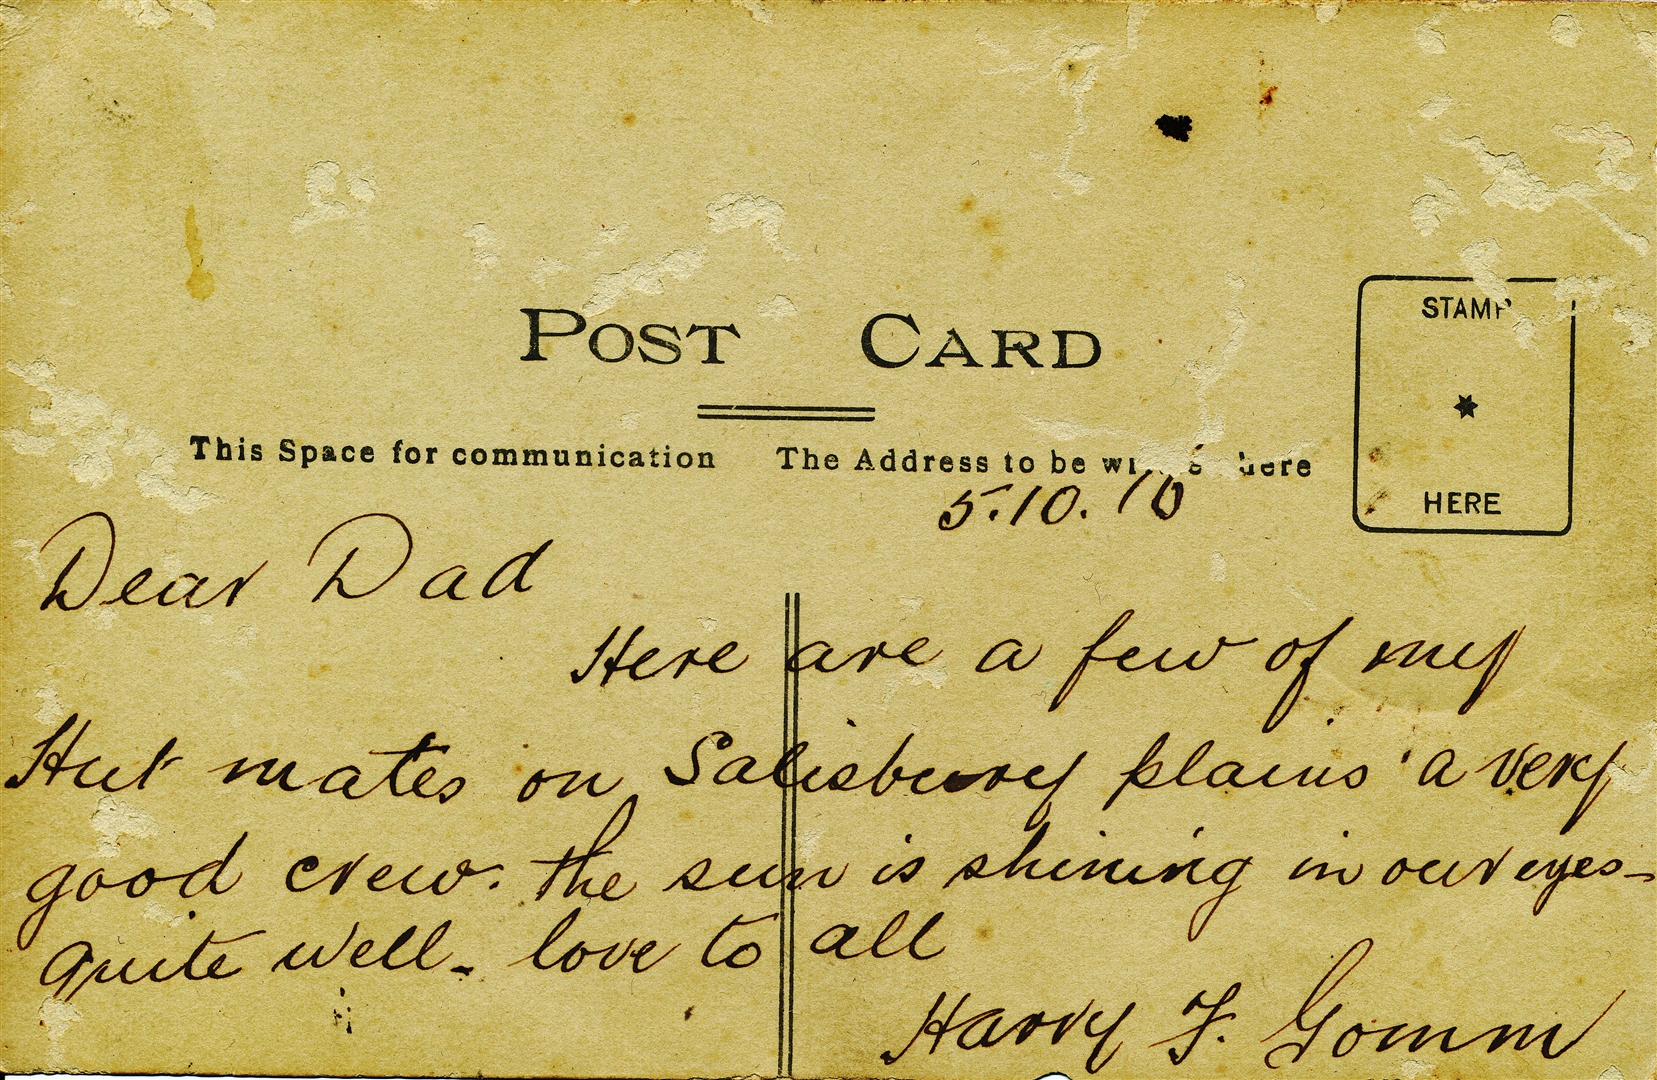 POST CARD
STAMP
HERE
This Space for communication The Address to be here
5.10.16
Dear Dad
Here are a few of my
Hut mates on Salisbury plains a very
good crew. the sun is shining in our eyes–
quite well – love to all
Harry F. Gomm